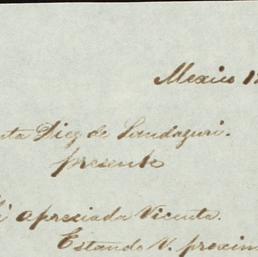 Mexico 1
Diez de Landazuri.
presente
apreciada Vicenta.
Estando V. proxim